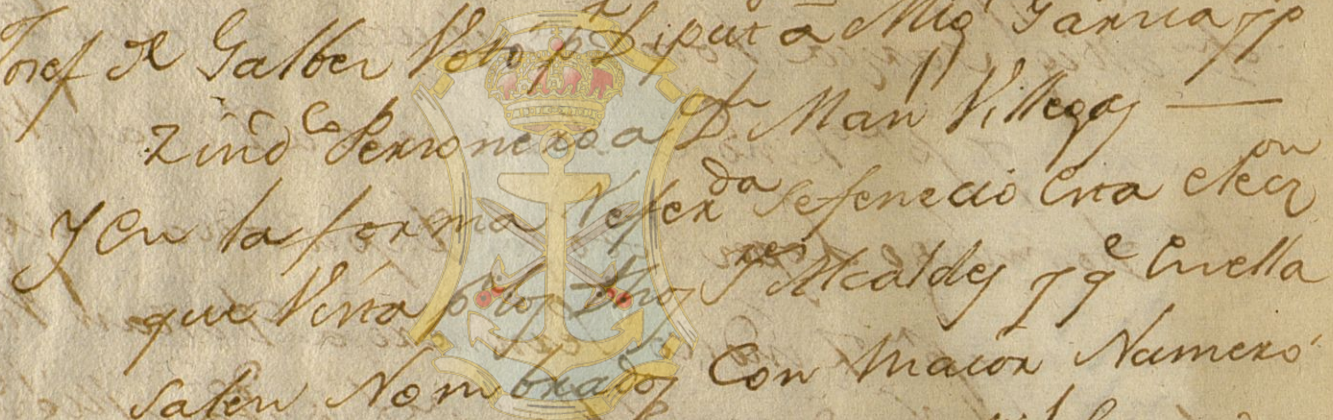 Josef de Galbez Voto pr Diputa a Migl Garcia y p
Zindco Personero a Dn Manl Villegas —
Y en la forma Referda se fenecio esta eleczon
que vista pr los dhos Sres Alcaldes y qe en ella
salen Nombrados Con maior Numero